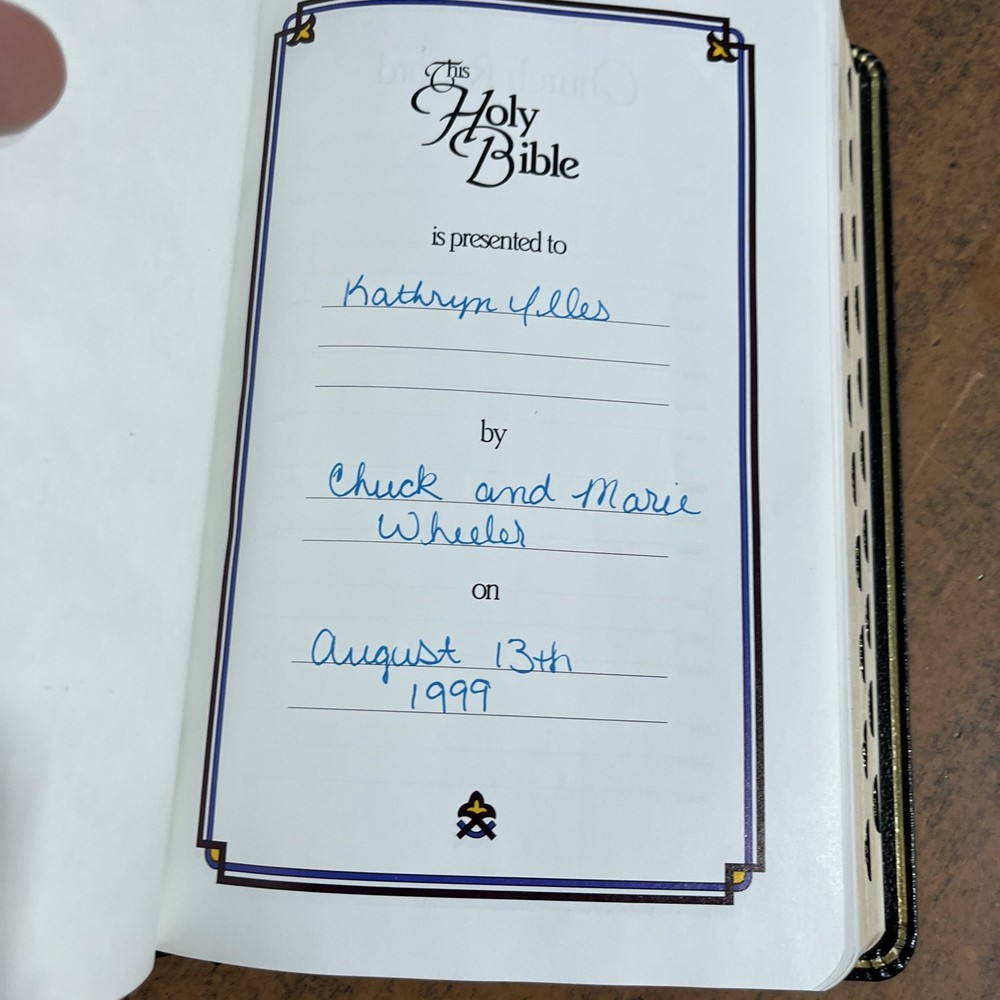 This
Holy
Bible
is presented to
Kathryn
by
Chuck and Marie
Wheeler
on
August 13th
1999